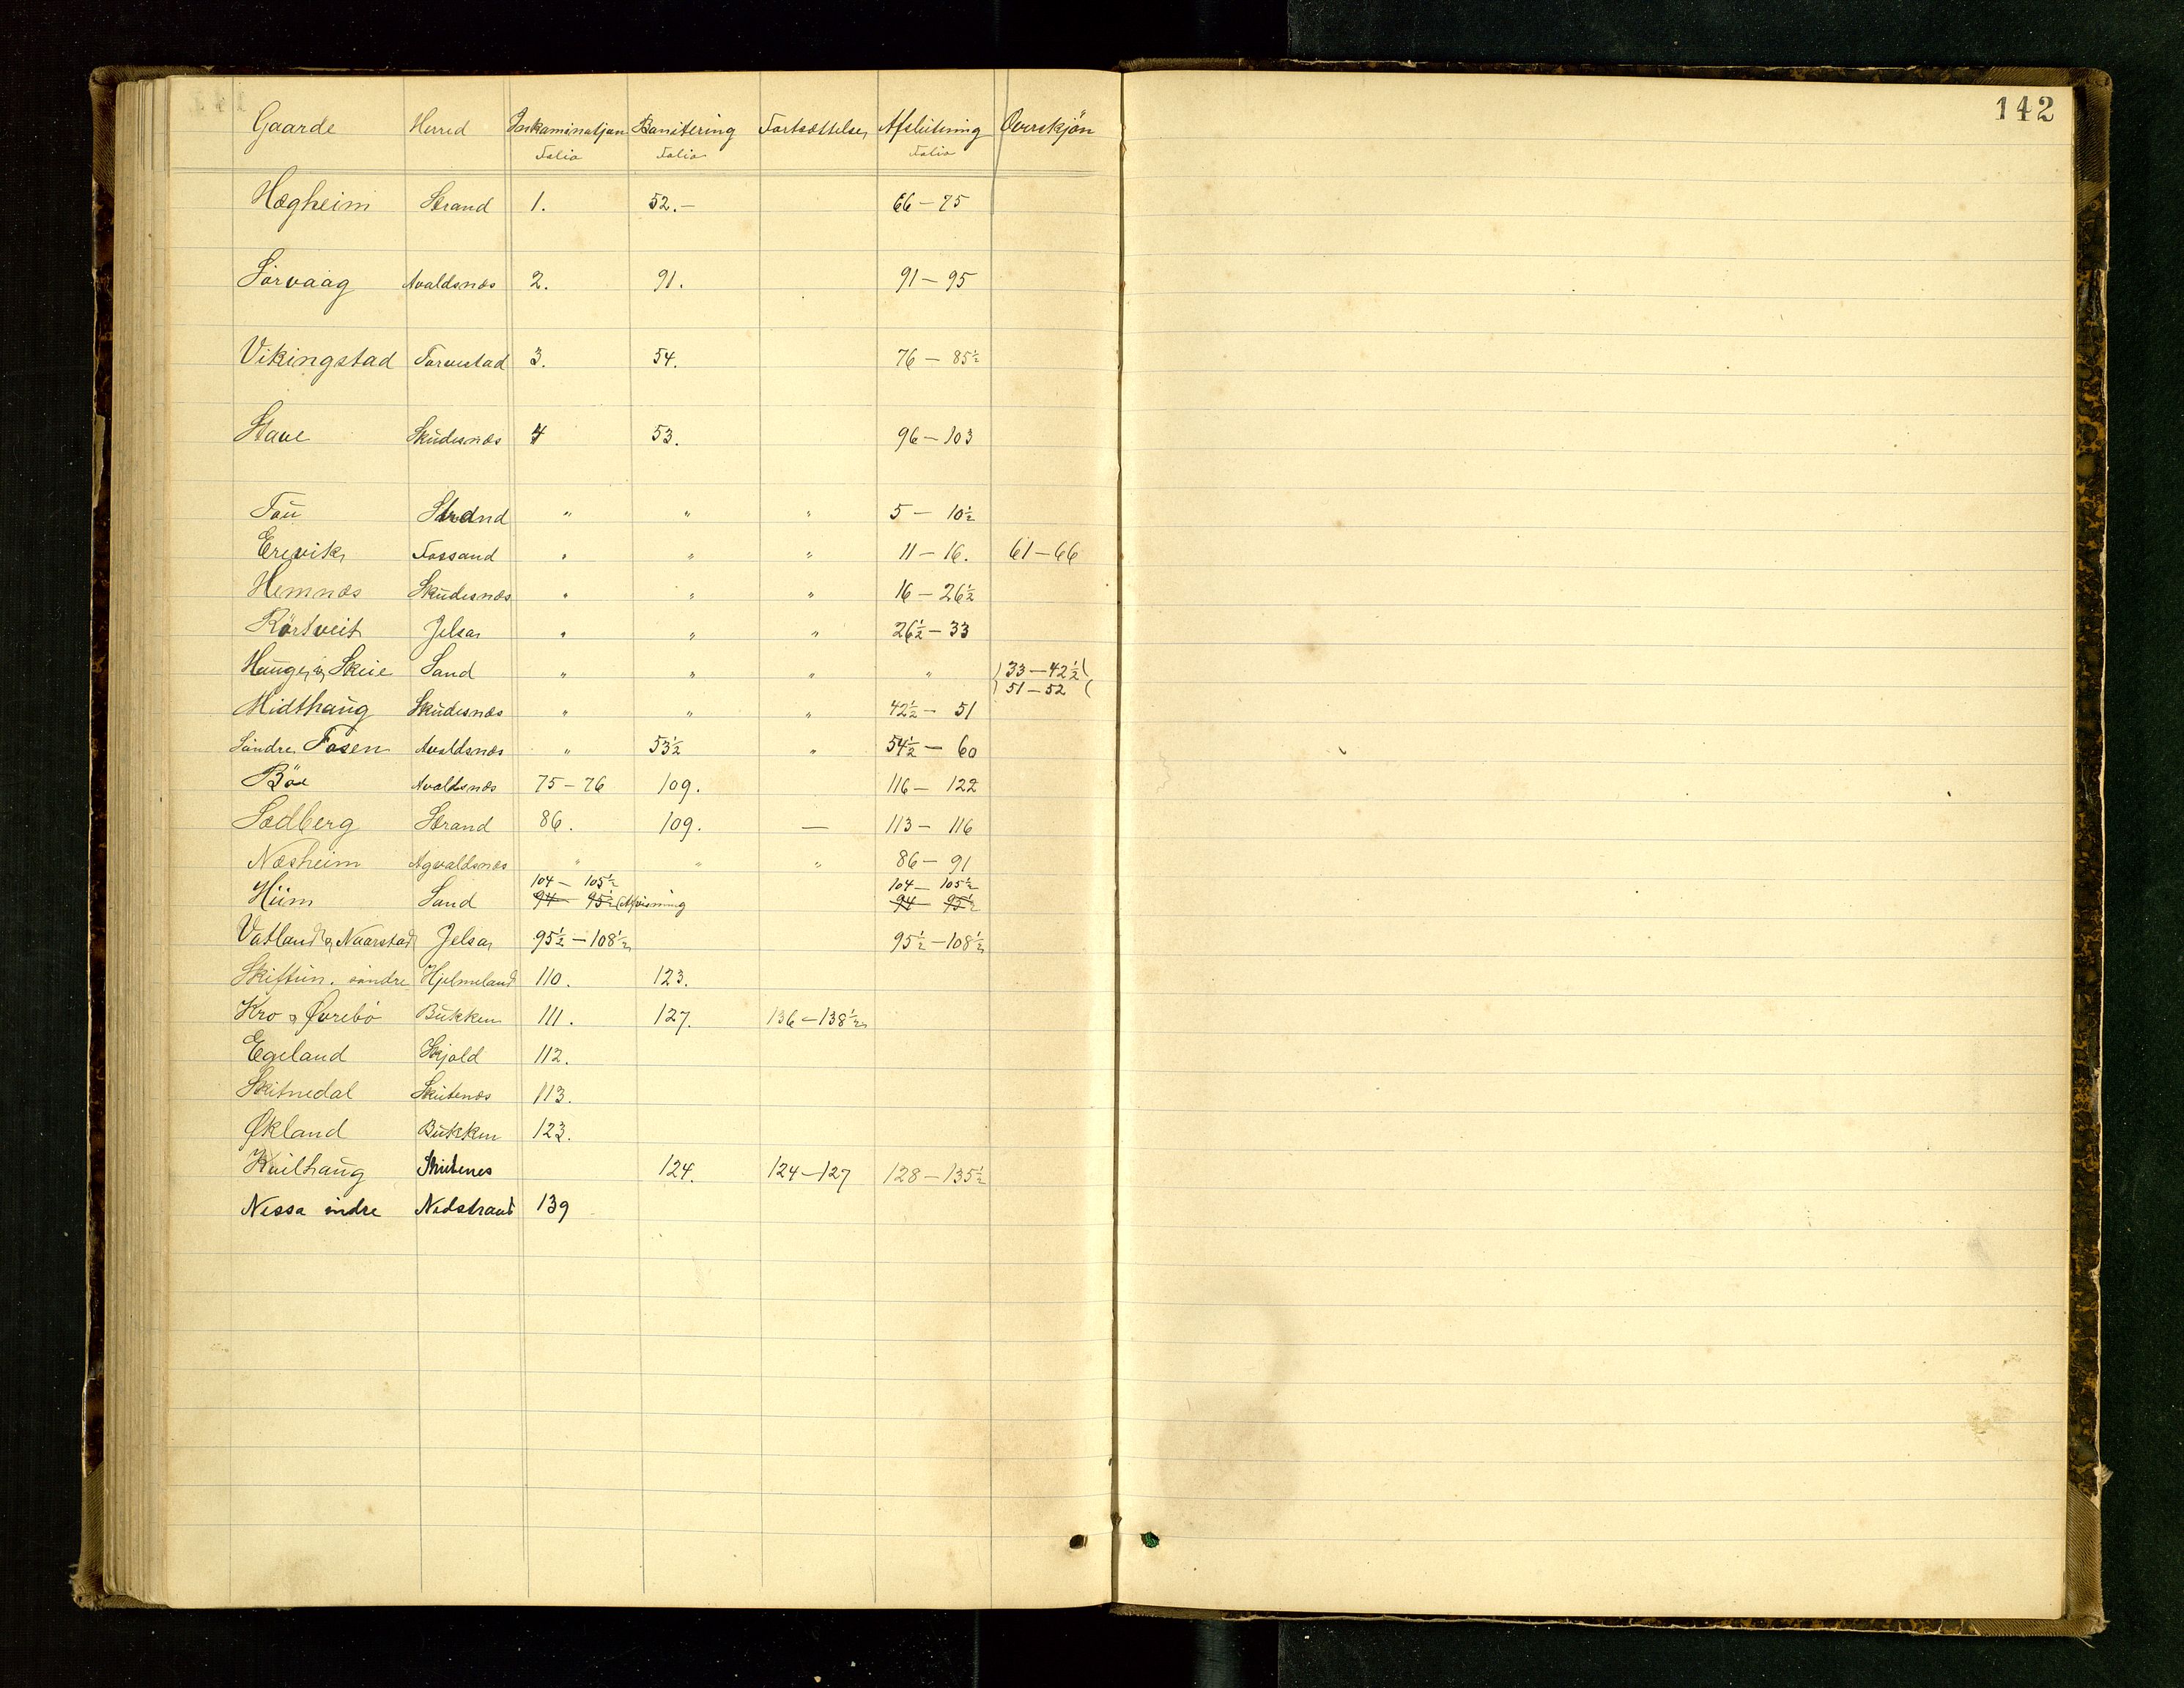 142
Gaarde Herred Inkaminatjon Bonitering Fortsættelse Afslutning Overskjön
Folio Folio Folio
Hægheim Strand 1. 52.— 66 — 75
Sörvaag Avaldsnæs 2. 91. 91 — 95
Vikingstad Torvestad 3. 54. 76 — 85½
Stave Skudesnæs 4 53. 96 — 103
Tau Strand " " " 5 — 10½
Erevik Fossand " " " 11 — 16. 61 — 66
Hemnæs Skudesnæs " " " 16 — 26½
Rörtveit Jelsa " " " 26½ — 33
Hauge og Skeie Sand " " " " 33 — 42½
51 — 52
Midthaug Skudesnæs " " " 42½ — 51
Söndre Fosen Avaldsnæs " 53½ " 54½ — 60
Böe Avaldsnæs 75 — 76 109. 116 — 122
Sædberg Strand 86. 109. — 113 — 116
Næsheim Agvaldsnæs " " " 86 — 91
104 — 105½ 104 — 105½
Hiim Sand 94 95½ (Afvisning 94 95½
Vatland & Naarstad Jelsa 95½ — 108½ 95½ — 108½
Skiftun söndre Hjelmeland 110. 123.
Kro & Øvrebö Bukken 111. 127. 136 — 138½
Egeland Skjold 112.
Skitnedal Skutenæs 113.
Økland Bukken 123.
Kuilhaug Skutenes 124. 124 — 127 128 — 135½
Nessa indre Nedstrand 139